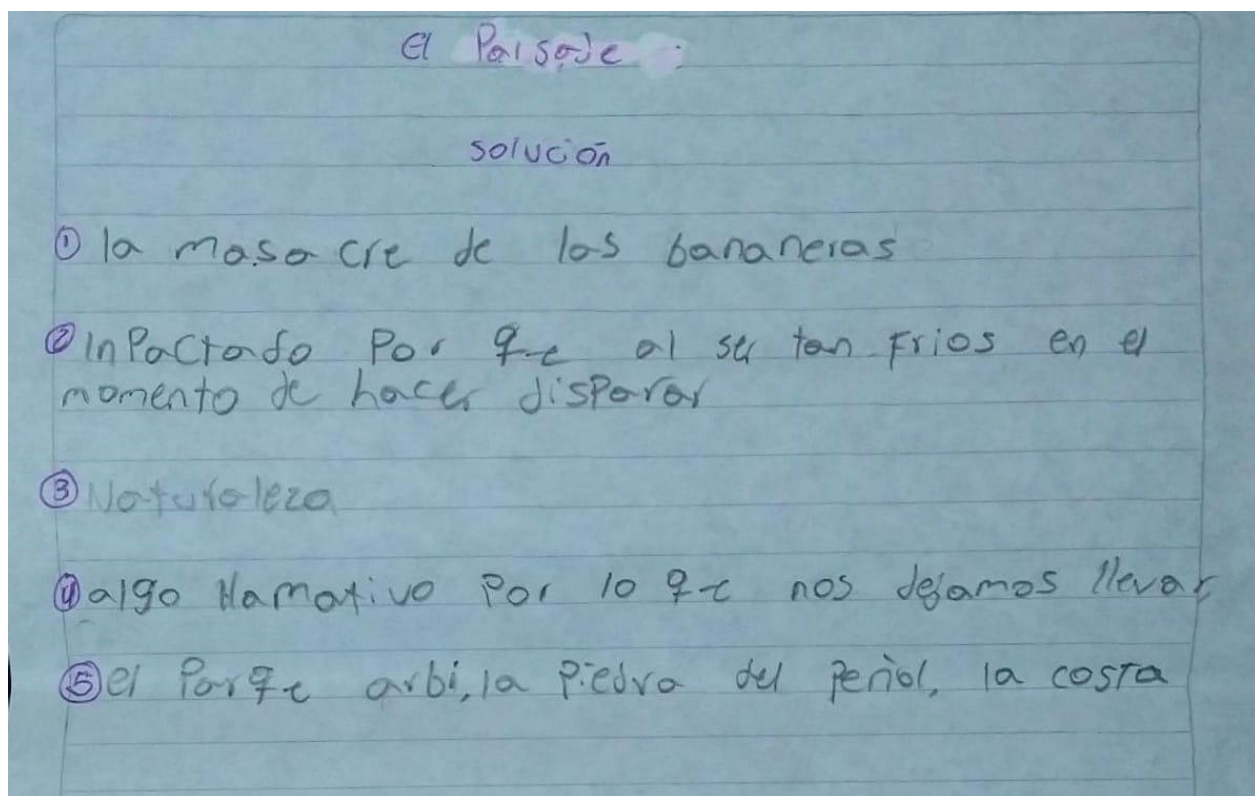 El Paisaje
solución
① la masacre de las bananeras
② inPactado Por qe al ser tan Frios en el
momento de hacer disParar
③ Naturaleza
④ algo llamativo Por lo qe nos dejamos llevar
⑤ el Parqe arbi, la Piedra del Peñol, la costa